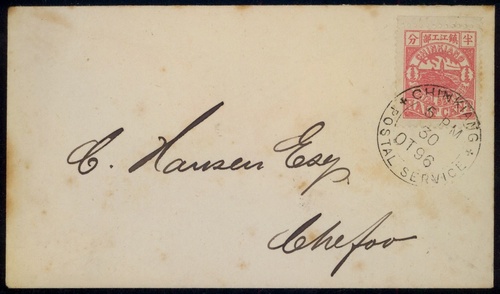 分 部工江鎮 半
CHINKIANG
CHINKIANG
6 PM
30
OT 96
POSTAL SERVICE
C. Hansen Esq.
Chefoo